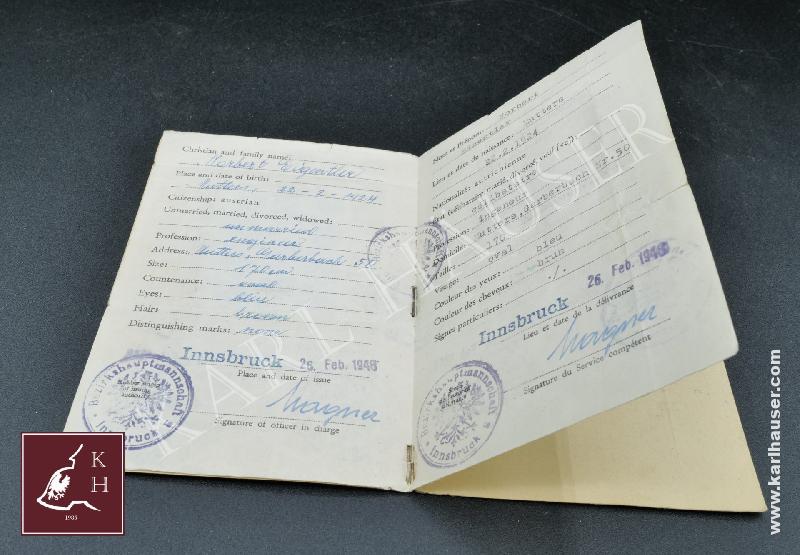 Christian and family name:
Herbert Eigentler
Place and date of birth:
22-2-1924
Citizenship: austrian
Unmarried, married, divorced, widowed:
unmarried
Profession:
Address:
Size: 170 cm
Countenance: oval
Eyes: blue
Hair: brown
Distinguishing marks: none
Innsbruck 26. Feb. 1946
Place and date of issue
Wagner
Signature of officer in charge
Bezirkshauptmannschaft
Innsbruck
Nom et Prénom: Herbert
Lieu et date de naissance: Mutters
22.2.1924
Nationalité: autrichienne
célibataire
Profession:
Domicile:
Taille: 170
Visage: oval
Couleur des yeux: bleu
Couleur des cheveux: brun
Signes particuliers: ./.
Innsbruck 26. Feb. 1946
Lieu et date de la délivrance
Wagner
Signature du Service compétent
Bezirkshauptmannschaft
Innsbruck
KARL HAUSER
KARL HAUSER
K
H
www.karlhauser.com